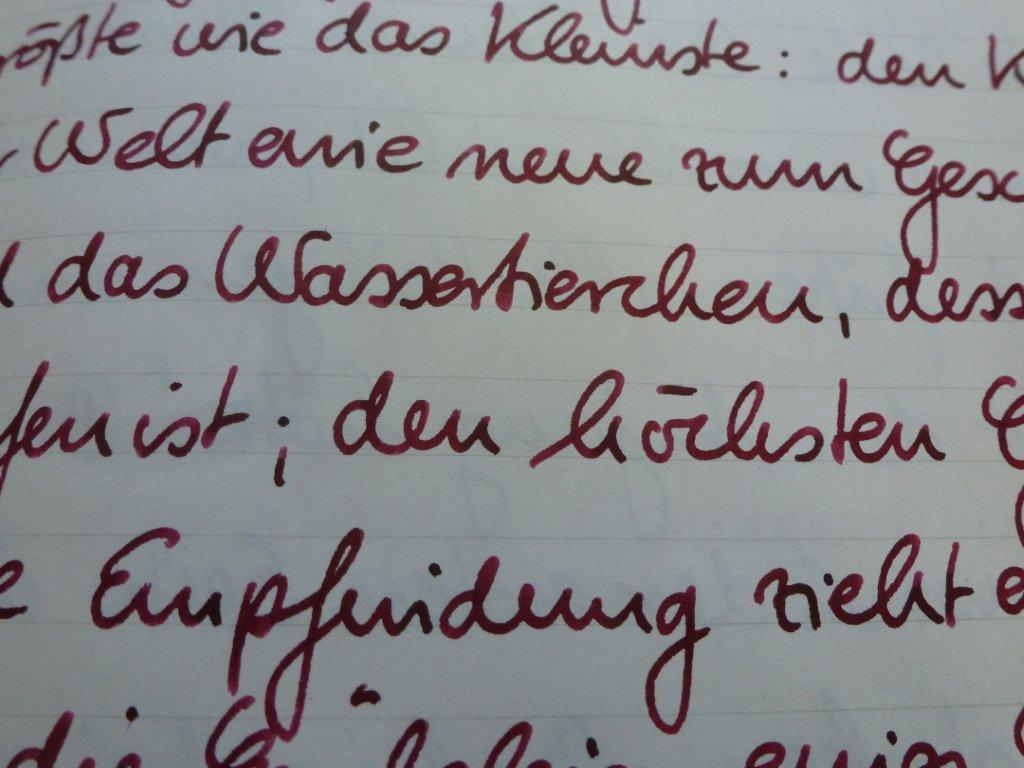 rößte wie das Kleinste: den K
Welt eine neue zum Gesc
das Wassertierchen, dess
fen ist; den höchsten G
e Empfindung zieht e
die